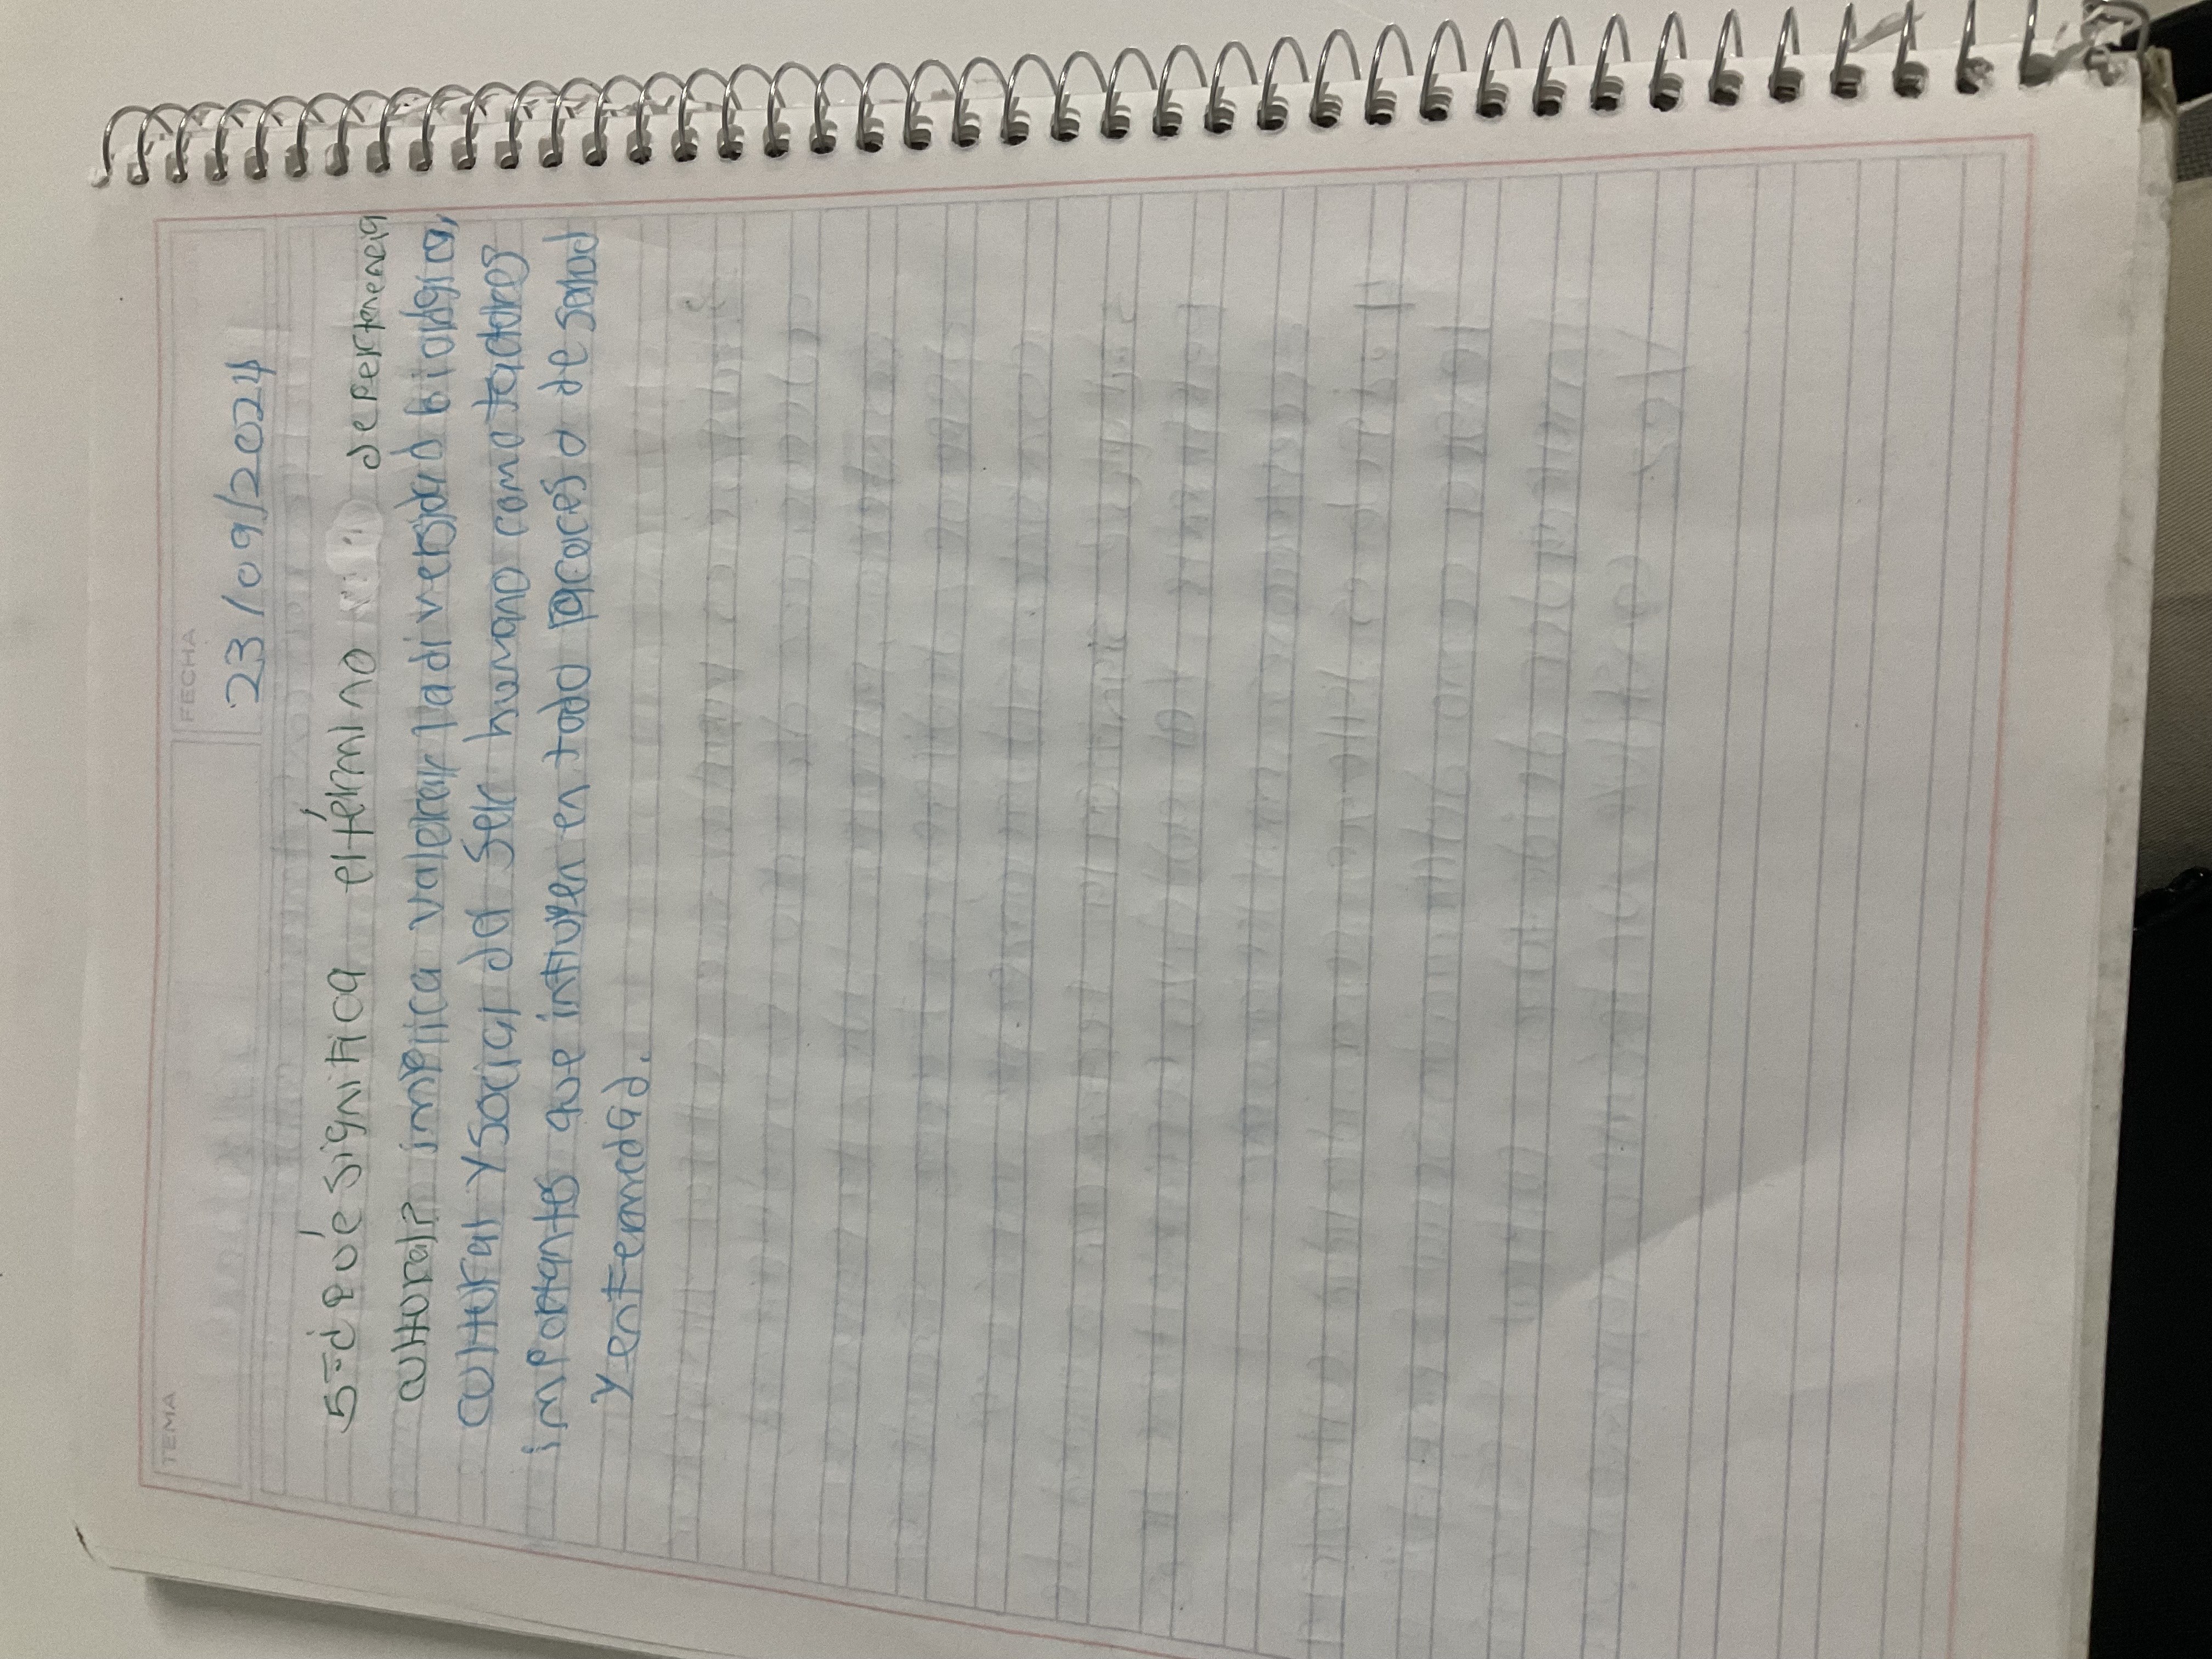 TEMA
FECHA
23/09/2024
5=¿qué significa el término de pertenencia
cultural? implica valorar la diversidad biológica,
cultural y social del ser humano como factores
importantes que influyen en todo proceso de salud
y enfermedad.